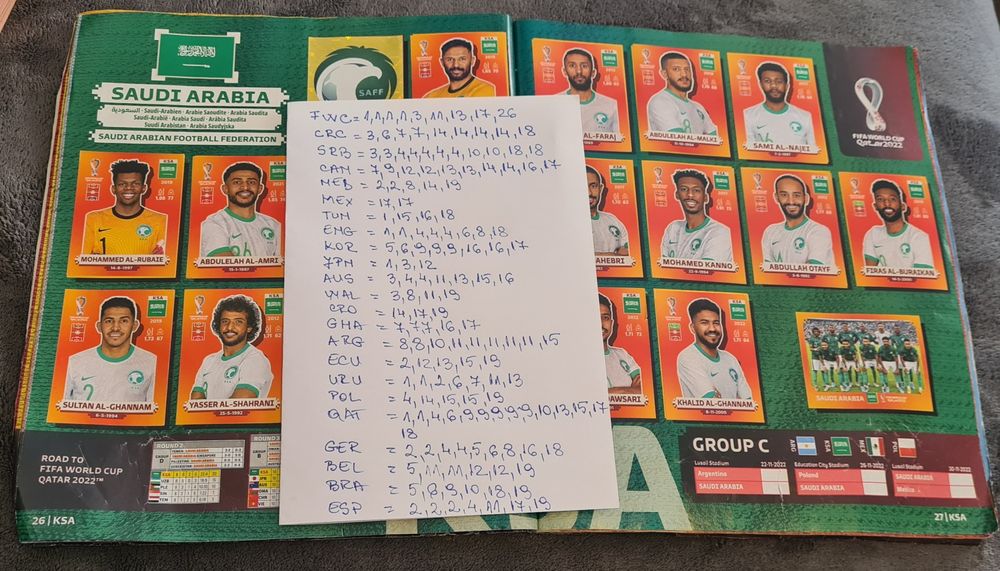 SAUDI ARABIA
السعودية · Saudi-Arabien · Arabie Saoudite · Arabia Saudita
Saudi-Arabië · Arabia Saudí · Arábia Saudita
Saudi Arabistan · Arabia Saudyjska
SAUDI ARABIAN FOOTBALL FEDERATION
SAFF
MOHAMMED AL-RUBAIE
14-8-1997
ABDULELAH AL-AMRI
15-1-1997
SULTAN AL-GHANNAM
6-5-1994
YASSER AL-SHAHRANI
25-5-1992
FWC = 1,1,1,1,3,11,13,17,26
CRC = 3,6,7,7,14,14,14,14,18
SRB = 3,3,4,4,4,4,4,10,10,18,18
CAM = 7,9,12,12,13,13,14,14,16,17
NED = 2,2,8,14,19
MEX = 17,17
TUN = 1,15,16,18
ENG = 1,1,4,4,4,6,8,18
KOR = 5,6,9,9,9,16,16,17
JPN = 1,3,12
AUS = 3,4,4,11,13,15,16
WAL = 3,8,11,19
CRO = 14,17,19
GHA = 7,7,7,16,17
ARG = 8,8,10,11,11,11,11,11,15
ECU = 2,12,13,15,19
URU = 1,1,2,6,7,11,13
POL = 4,14,15,15,19
QAT = 1,1,4,6,9,9,9,9,9,10,13,15,17
18
GER = 2,2,4,4,5,6,8,16,18
BEL = 5,11,11,12,12,19
BRA = 5,8,9,10,18,19
ESP = 2,2,2,4,11,17,19
AL-FARAJ
ABDULELAH AL-MALKI
SAMI AL-NAJEI
FIFA WORLD CUP
Qatar2022
MOHAMED KANNO
ABDULLAH OTAYF
FIRAS AL-BURAIKAN
KHALID AL-GHANNAM
8-11-2000
SAUDI ARABIA
ROAD TO
FIFA WORLD CUP
QATAR 2022™
ROUND 2
GROUP C
ARG
KSA
MEX
POL
Lusail Stadium
22-11-2022
Argentina
SAUDI ARABIA
Education City Stadium
26-11-2022
Poland
SAUDI ARABIA
Lusail Stadium
30-11-2022
SAUDI ARABIA
Mexico
26 | KSA
27 | KSA